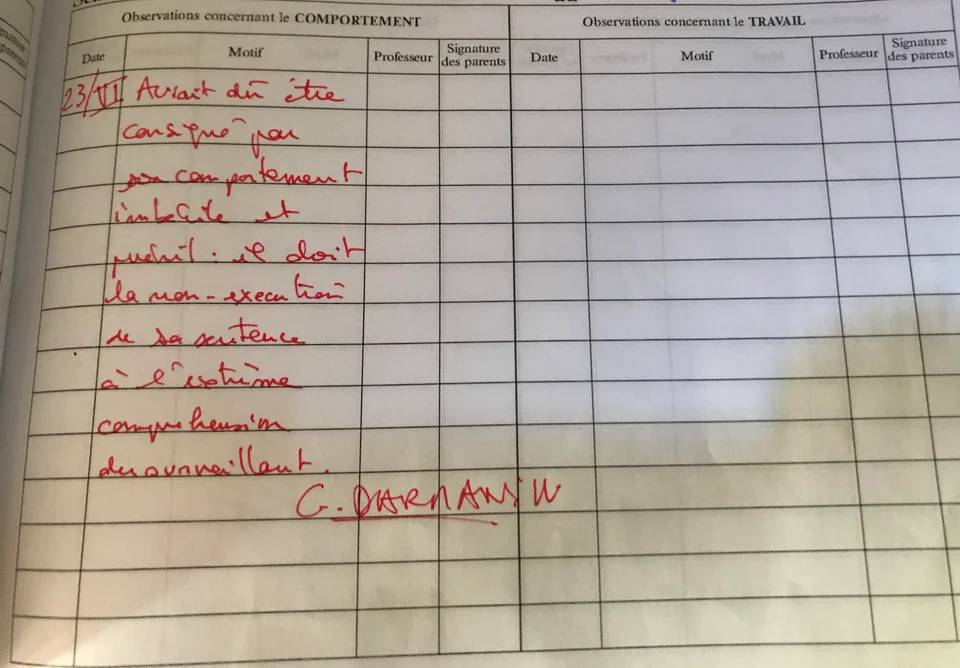 Observations concernant le COMPORTEMENT
Observations concernant le TRAVAIL
Date
Motif
Professeur
Signature des parents
Date
Motif
Professeur
Signature des parents
23/VI Aurait dû être
consigné par
son comportement
imbécile et
puéril. il doit
la non-execution
de sa sentence
à l'extrême
compréhension
du surveillant.
G. DARMANIN